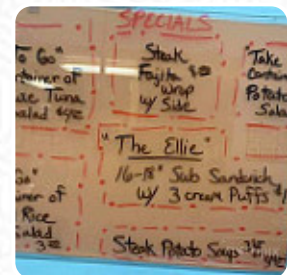 SPECIALS
To Go"
ntainer of
Tuna
alad
Steak
Fajita
Wrap
w/ Side
"Take
Contain
Potato
Sala
"The Ellie"
16-18" Sub Sandwich
w/ 3 cream Puffs
Go"
iner of
Rice
alad
Steak Potato Soup